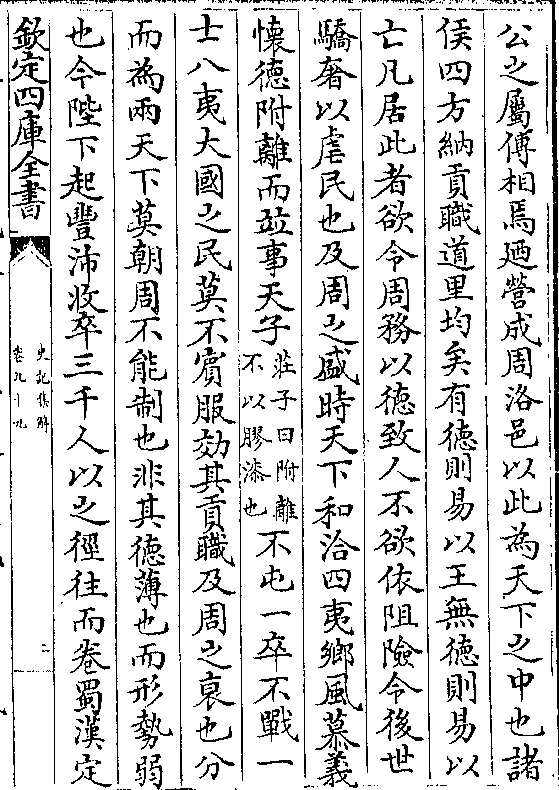 公之屬傅相焉廼營成周洛邑以此為天下之中也諸
侯四方納貢職道里均矣有德則易以王無德則易以
亡凡居此者欲令周務以德致人不欲依阻險令後世
驕奢以虐民也及周之盛時天下和洽四夷鄉風慕義
懷德附離而並事天子莊子曰附離不以膠漆也不屯一卒不戰一
士八夷大國之民莫不賓服効其貢職及周之衰也分
而為兩天下莫朝周不能制也非其德薄也而形勢弱
也今陛下起豐沛收卒三千人以之徑往而卷蜀漢定
欽定四庫全書
史記集解
卷九十九
二